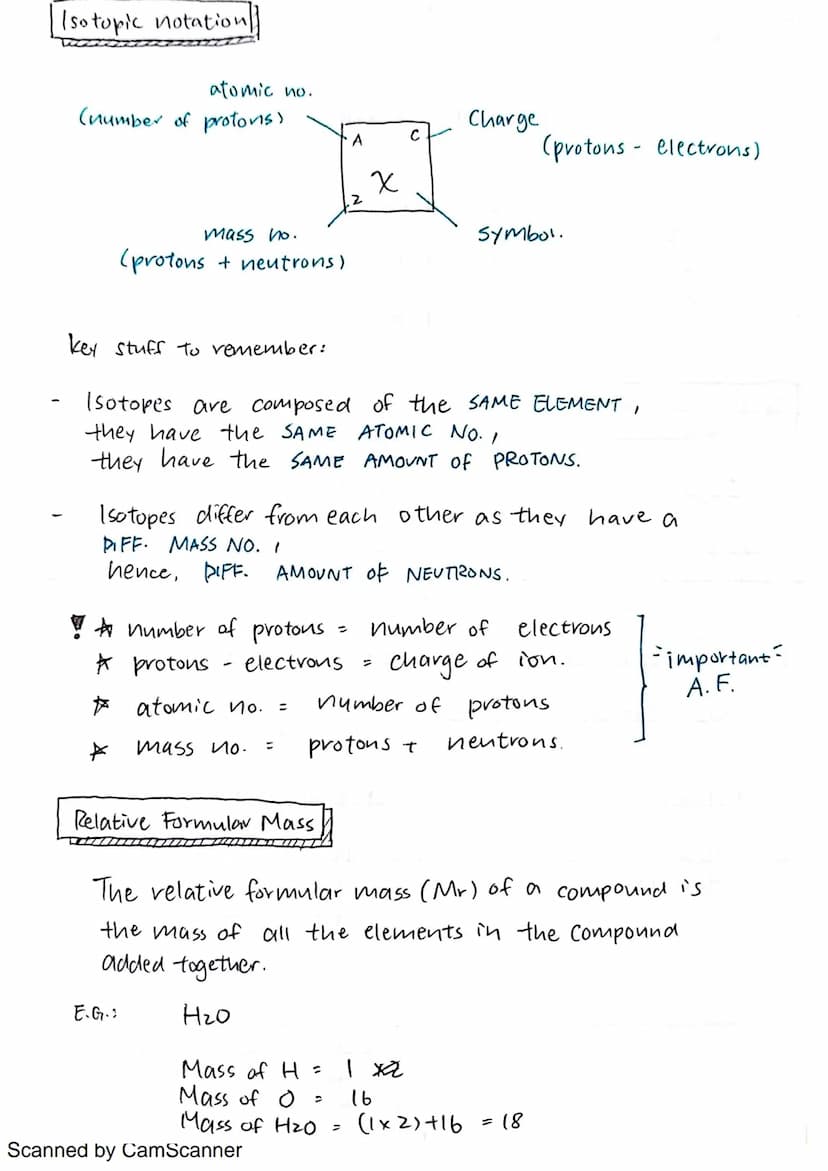 Isotopic notation
atomic no.
(number of protons)
A
C
Charge
(protons - electrons)
X
Z
mass no.
(protons + neutrons)
symbol.
key stuff to remember:
- Isotopes are composed of the SAME ELEMENT,
they have the SAME ATOMIC NO.,
they have the SAME AMOUNT of PROTONS.
- Isotopes differ from each other as they have a
DIFF. MASS NO.,
hence, DIFF. AMOUNT of NEUTRONS.
! ☆ number of protons = number of electrons
☆ protons - electrons = charge of ion.
☆ atomic no. = number of protons
☆ mass no. = protons + neutrons.
-important-
A.F.
Relative Formular Mass
The relative formular mass (Mr) of a compound is
the mass of all the elements in the compound
added together.
E.G.: H2O
Mass of H = 1 x2
Mass of O = 16
Mass of H2O = (1x2)+16 = 18
Scanned by CamScanner